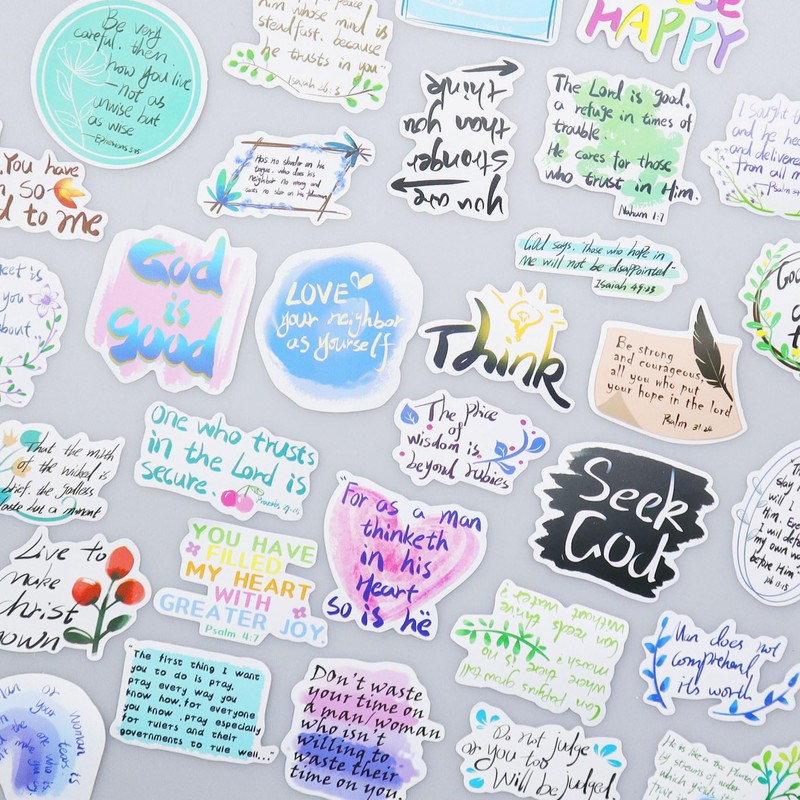 Be very
careful, then,
how you live
—not as
unwise but
as wise
—Ephesians 5:15
him whose mind is
steadfast, because
he trusts in you"
Isaiah 26:3
HAPPY
you are
stronger
than you
think
The Lord is good,
a refuge in times of
trouble.
He cares for those
who trust in Him.
Nahum 1:7
I sought
and he
and delivered
from all
Psalm
You have
so
d to me
Has no slander on his
tongue, who does his
neighbor no wrong and
casts no slur on his
God says, "Those who hope in
me will not be disappointed"
Isaiah 49:23
God
is
good
LOVE
your neighbor
as yourself
Think
Be strong
and courageous,
all you who put
your hope in the lord
Psalm 31:24
is
you
about.
One who trusts
in the Lord is
secure.
Proverbs
The Price
of
wisdom is
beyond rubies
Seek
God
That the mirth
of the wicked is
brief, the godless
but a moment
"For as a man
thinketh
in his
Heart
so is he
Live to
make
christ
nown
YOU HAVE
FILLED
MY HEART
WITH
GREATER JOY
Psalm 4:7
Can papyrus grow tall
where there is no
marsh?
Can reeds thrive
without water?
Man does not
comprehend
its worth
"The first thing I want
you to do is pray.
pray every way you
know how,for everyone
you know .pray especially
for rulers and their
governments to rule well..."
Don't waste
your time on
a man/woman
who isn't
willing to
waste their
time on you.
Do not judge
or you too
Will be judged.
He is like a tree planted
by streams of water
which yields its
fruit